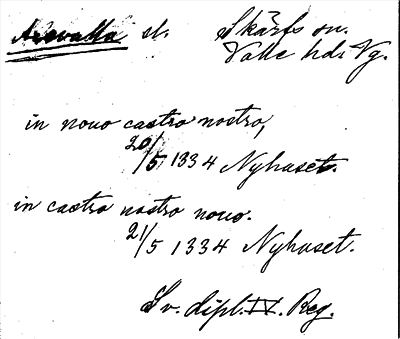 Axevalla sl. Skärfs sn.
Valle hd. Vg.
in novo castro nostro,
20/5 1334 Nyhuset.
in castro nostro novo.
21/5 1334 Nyhuset.
Sv. dipl. IV. Reg.